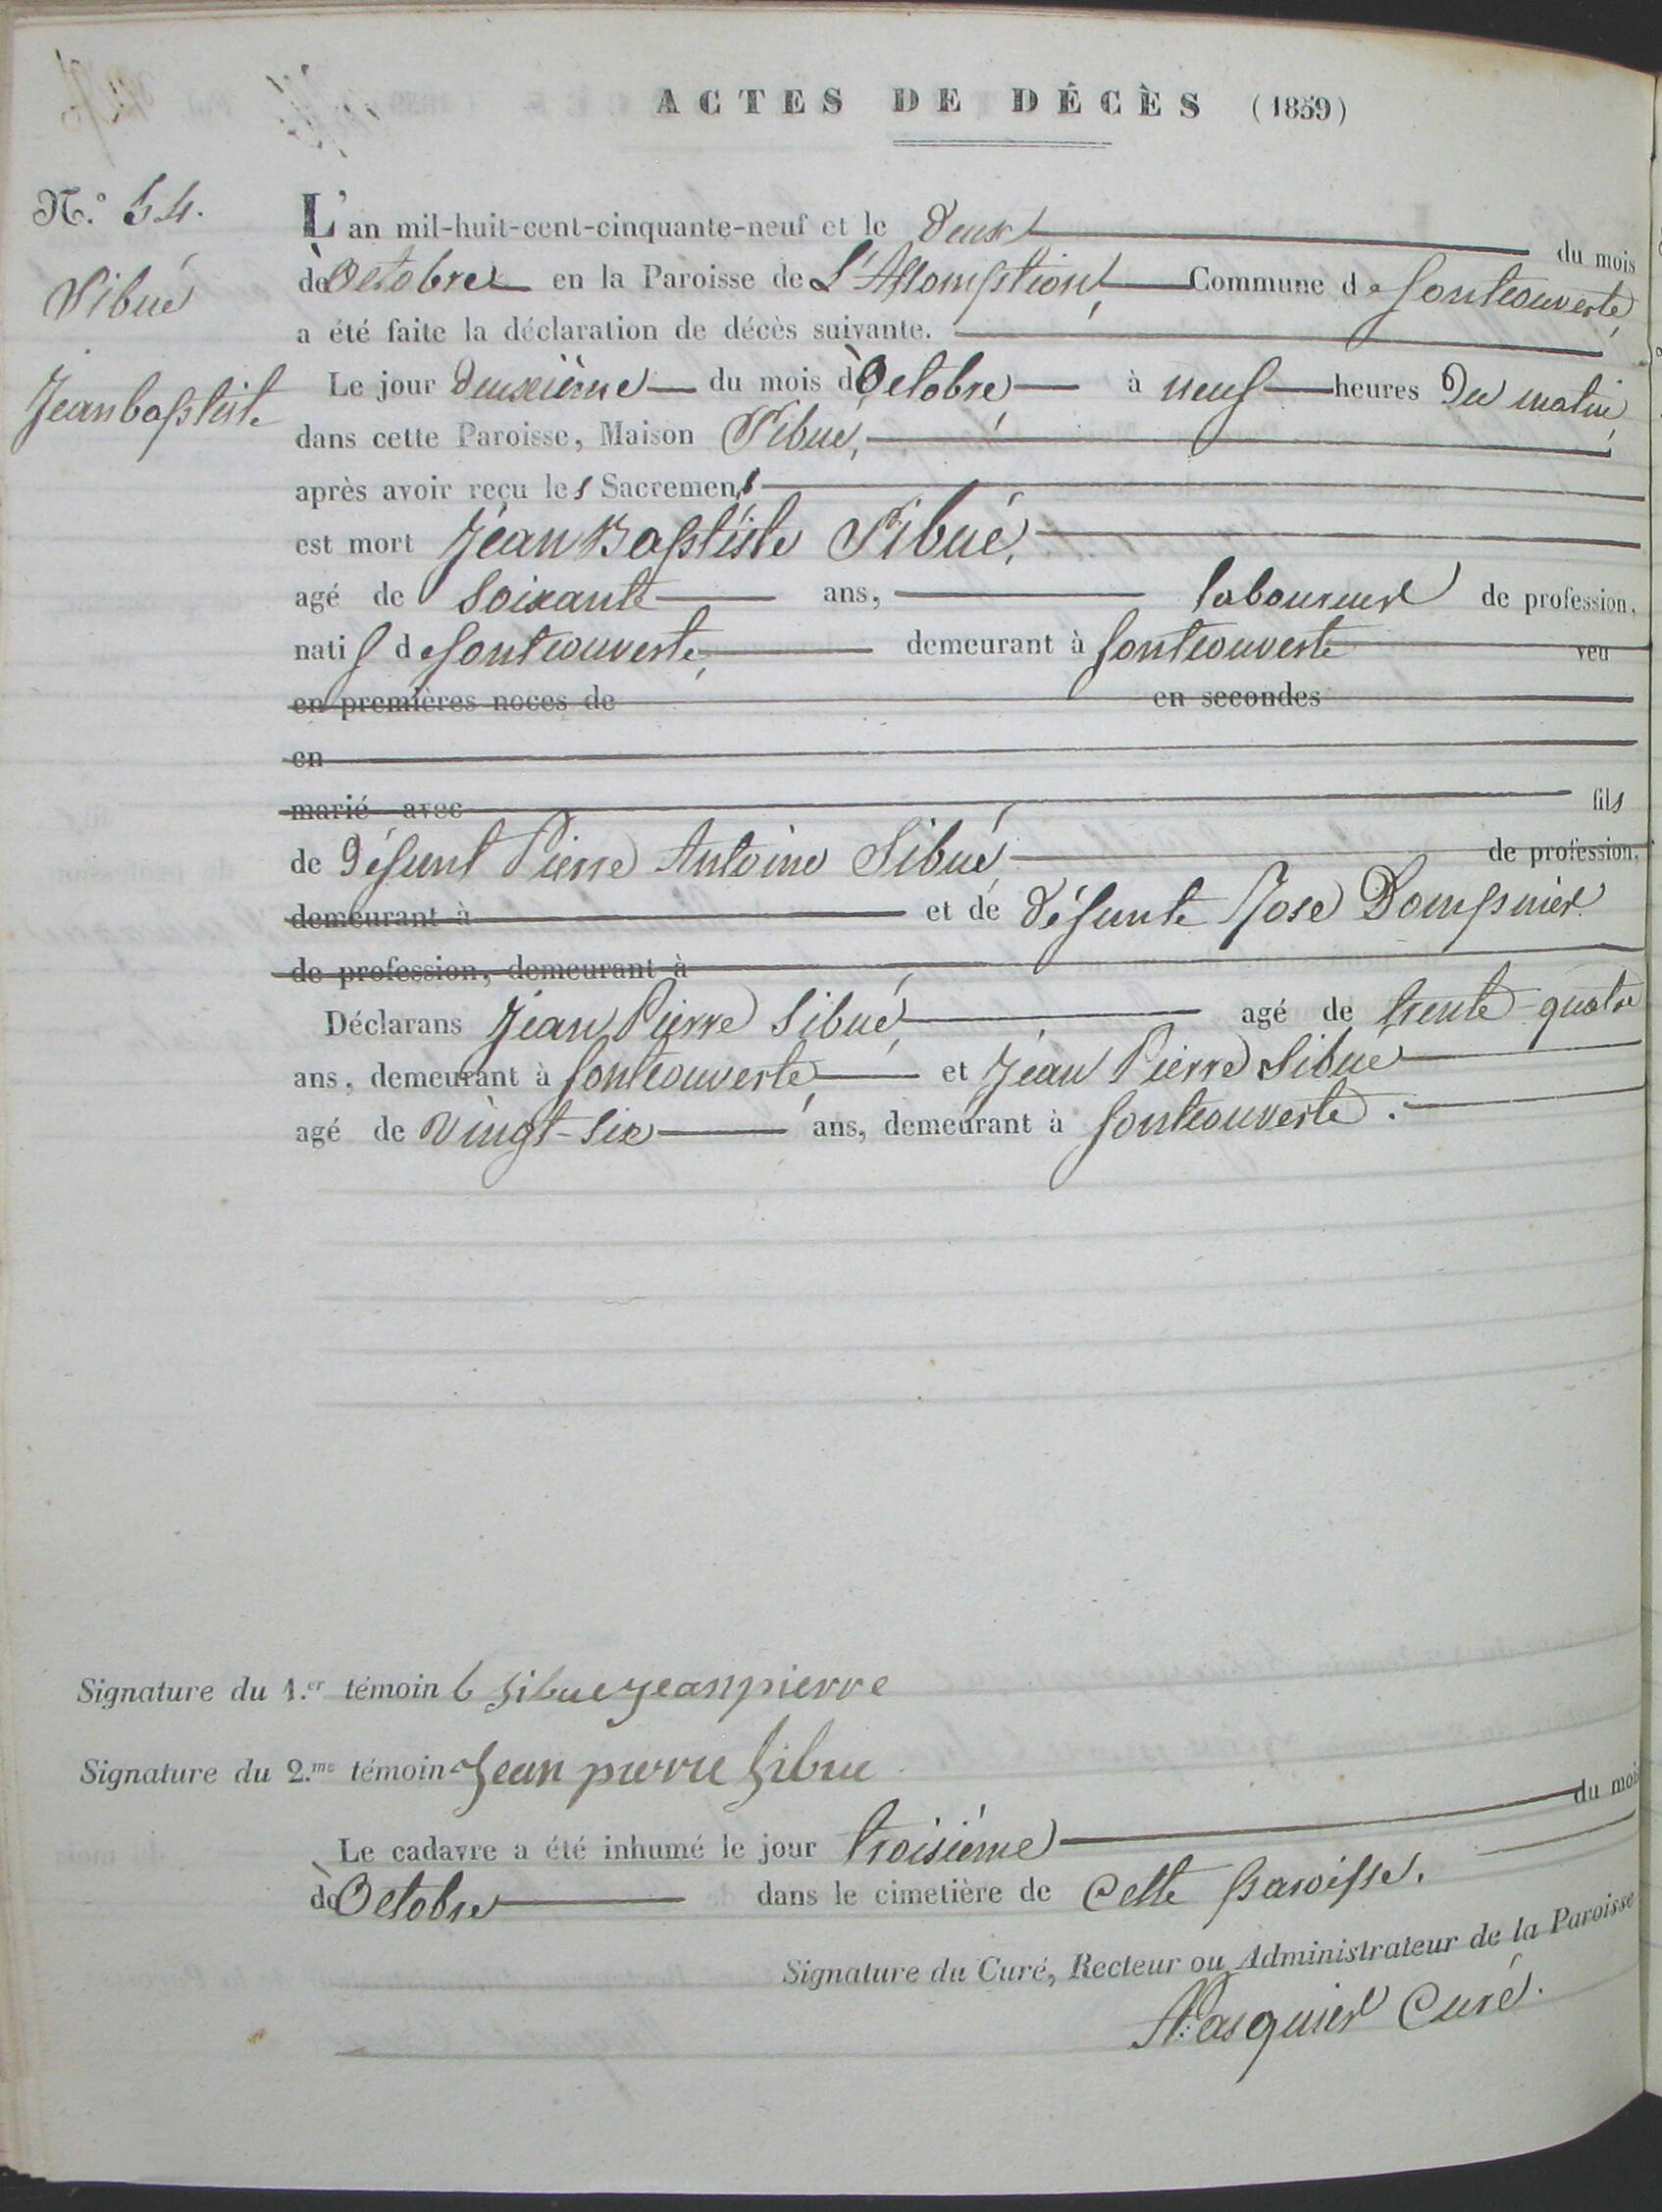 ACTES DE DÉCÈS (1859)
N.° 54.
Sibué
Jeanbaptiste
L'an mil-huit-cent-cinquante-neuf et le deux du mois
d'Octobre en la Paroisse de L'Assomption, Commune de fontcouverte,
a été faite la déclaration de décès suivante.
Le jour deuxième du mois d'Octobre à neuf heures Du matin,
dans cette Paroisse, Maison Sibué,
après avoir reçu les Sacremens
est mort Jean Baptiste Sibué,
agé de soixante ans, laboureur de profession,
natif de fontcouverte, demeurant à fontcouverte veu
en premières noces de en secondes
en
marié avec fils
de Défunt Pierre Antoine Sibué de profession,
demeurant à et de défunte Rose Dompnier
de profession, demeurant à
Déclarans Jean Pierre Sibué, agé de trente-quatre
ans, demeurant à fontcouverte, et Jean Pierre Sibué
agé de vingt-six ans, demeurant à fontcouverte.
Signature du 1.er témoin sibue jeanpierre
Signature du 2.me témoin Jean pierre Sibue
Le cadavre a été inhumé le jour troisième du mois
d'Octobre dans le cimetière de cette paroisse.
Signature du Curé, Recteur ou Administrateur de la Paroisse
Pasquier Curé.